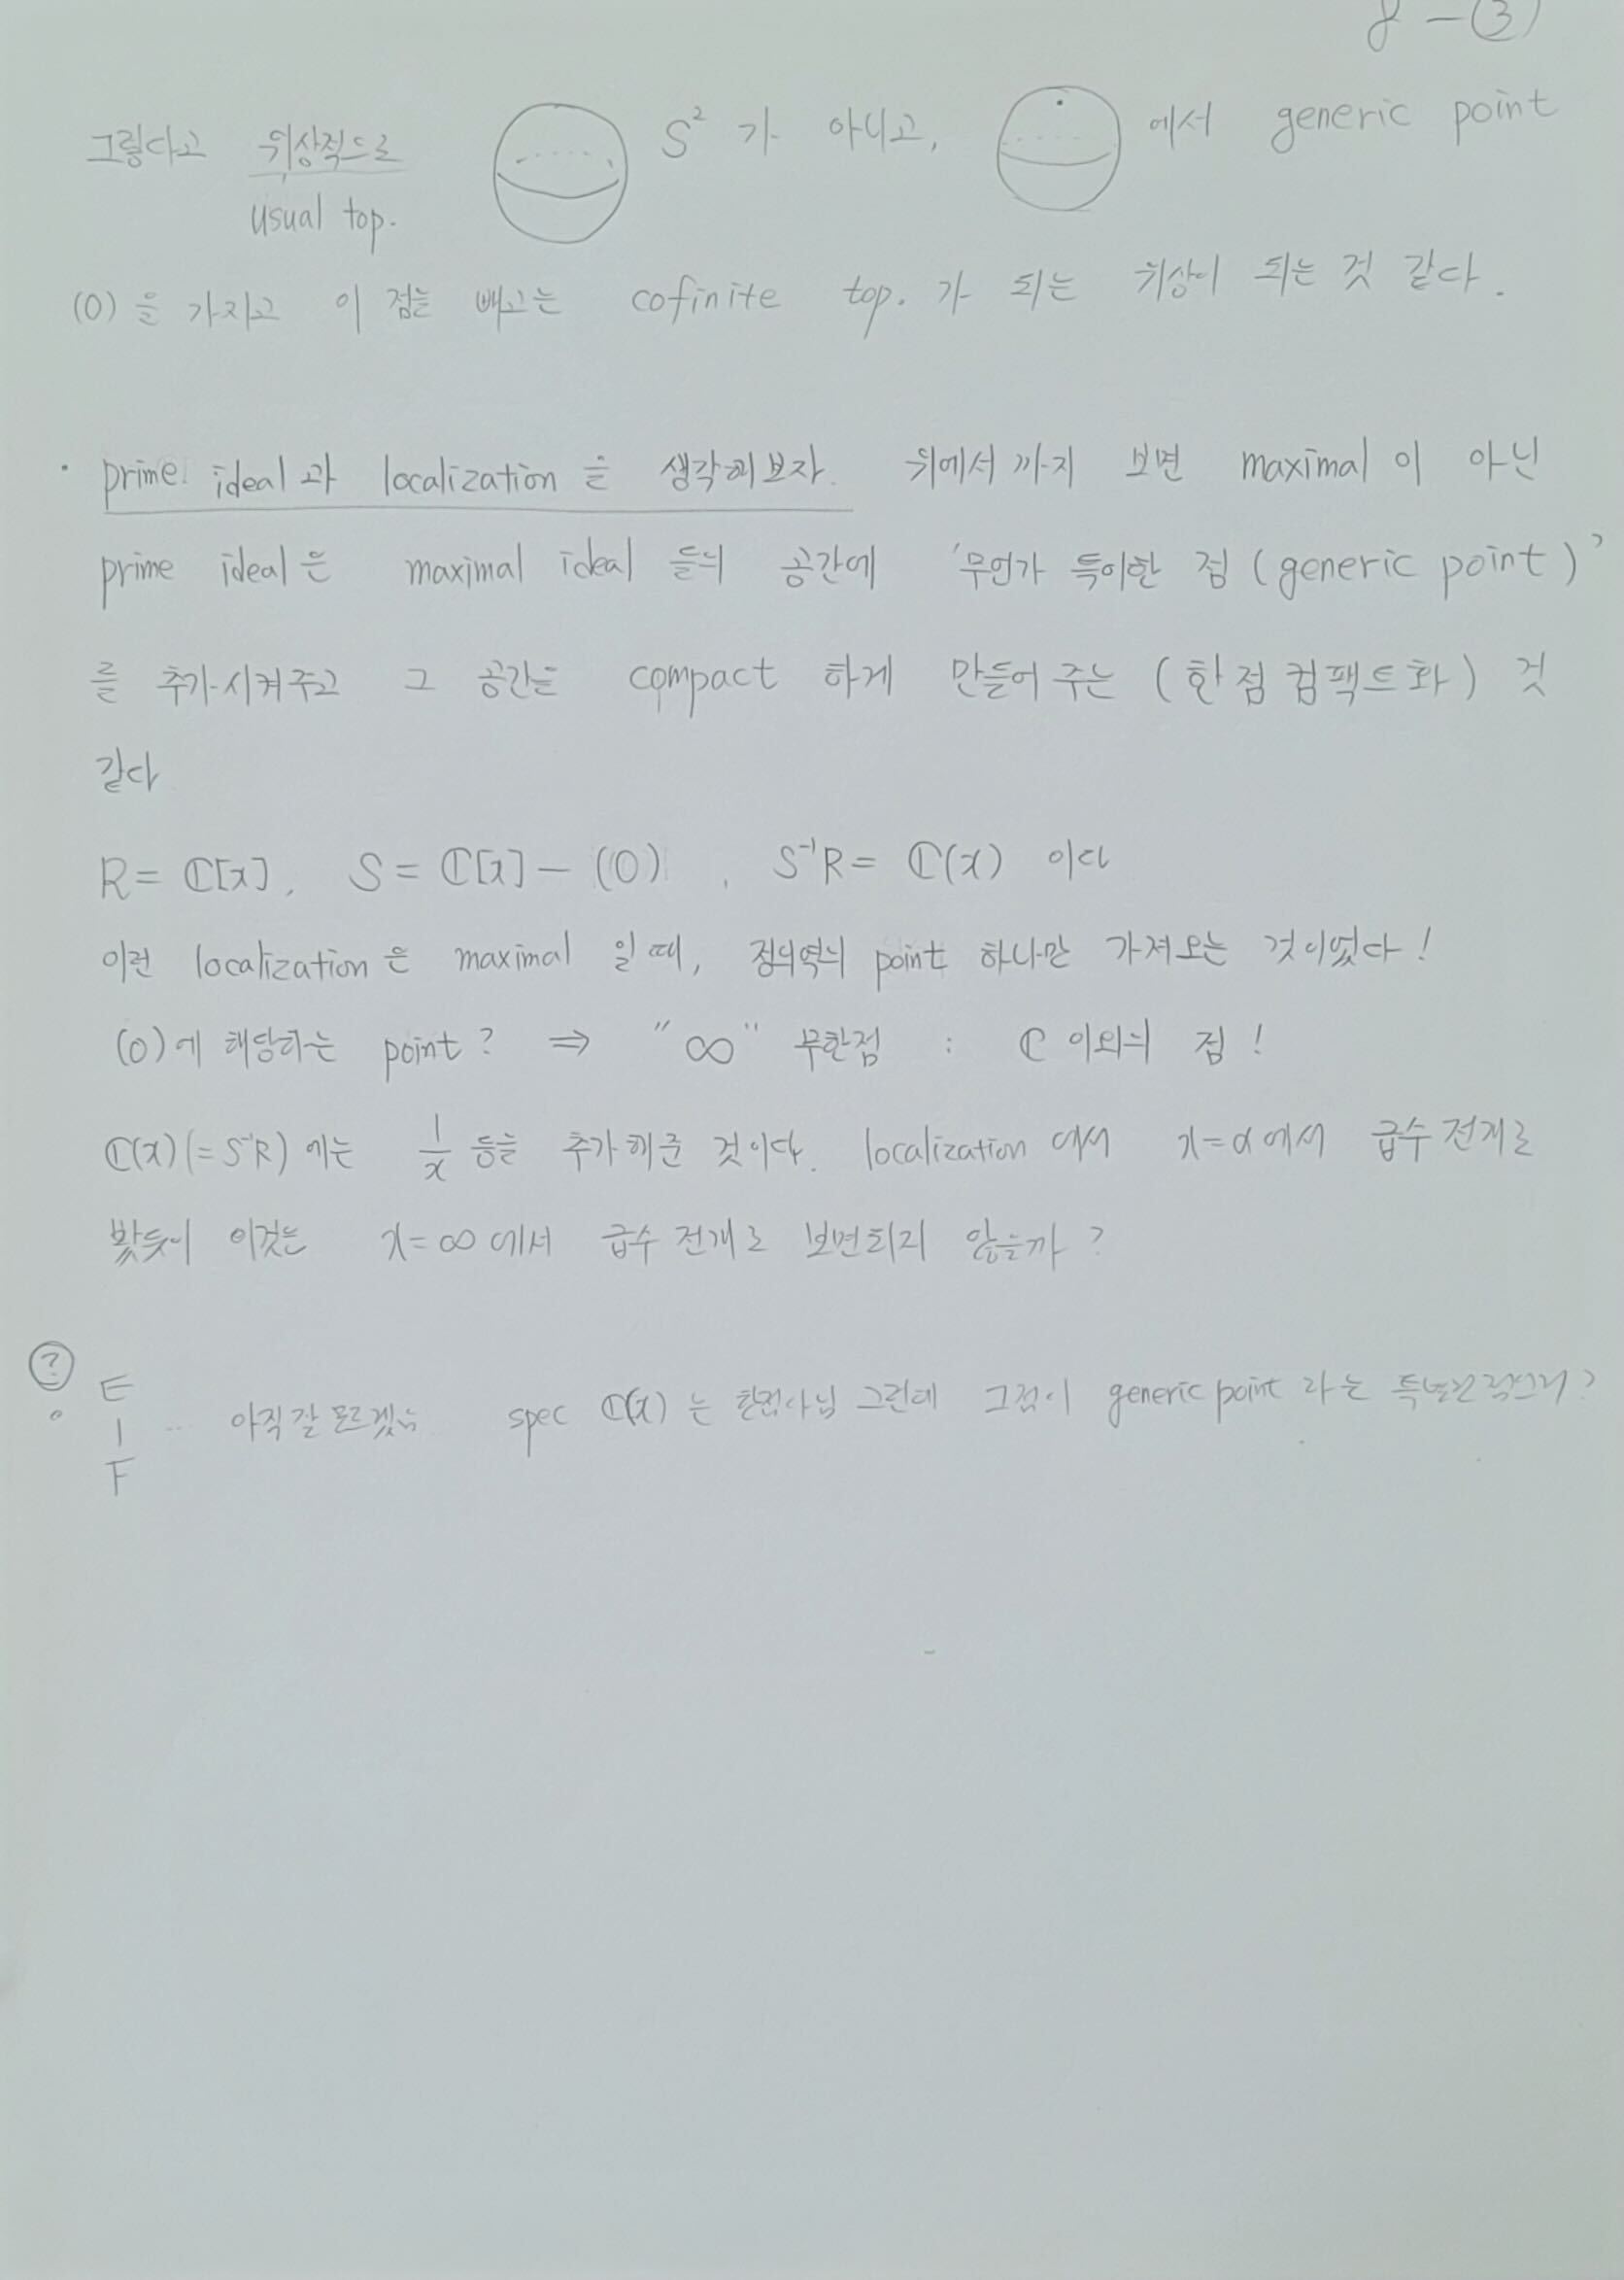 8 - ③
그렇다고 위상적으로 S² 가 아니고, 에서 generic point
usual top.
(0)을 가지고 이 점을 빼고는 cofinite top. 가 되는 위상이 되는 것 같다.
· prime ideal과 localization을 생각해보자. 위에서 까지 보면 maximal이 아닌
prime ideal은 maximal ideal 들의 공간에 '무언가 특이한 점 (generic point)'
를 추가시켜주고 그 공간을 compact 하게 만들어 주는 (한점 컴팩트화) 것
같다
R = ℂ[x], S = ℂ[x] - (0), S⁻¹R = ℂ(x) 이다
이런 localization은 maximal 일 때, 정의역의 point 하나만 가져오는 것이었다!
(0)에 해당하는 point? ⇒ "∞" 무한점 : ℂ 이외의 점!
ℂ(x)(= S⁻¹R) 에는 1/x 등을 추가해준 것이다. localization 에서 x=α에서 급수 전개로
봤듯이 이것은 x=∞에서 급수 전개로 보면되지 않을까?
? E
| ‥ 아직 잘 모르겠음 spec ℂ(x)는 한점나님 그런데 그점이 generic point 라는
F